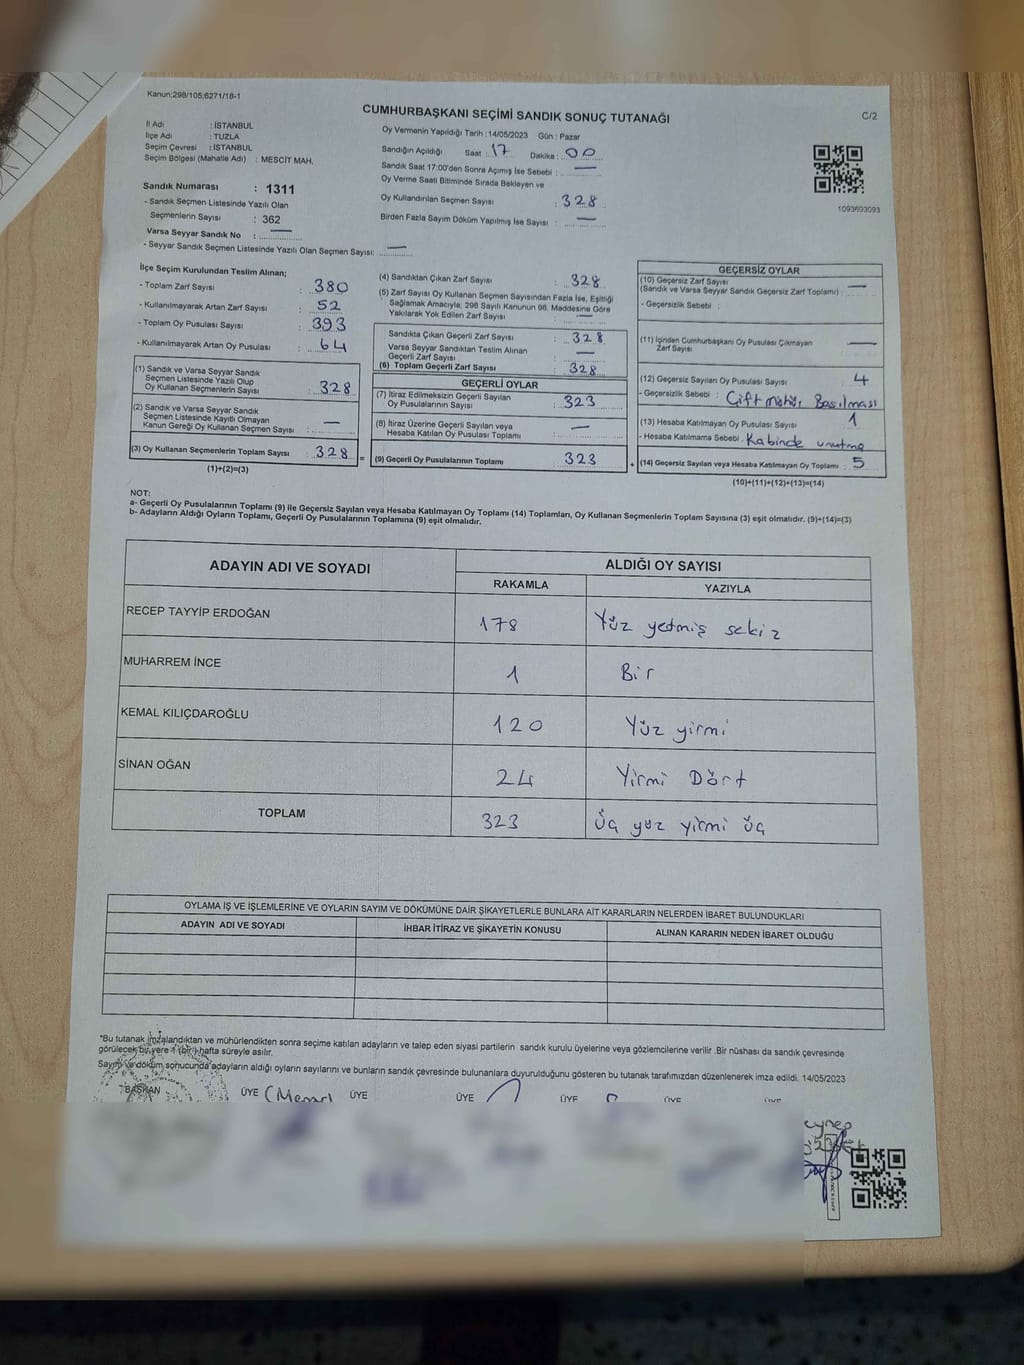 Kanun;298/105;6271/18-1
CUMHURBAŞKANI SEÇİMİ SANDIK SONUÇ TUTANAĞI
C/2
İl Adı : İSTANBUL
İlçe Adı : TUZLA
Seçim Çevresi : İSTANBUL
Seçim Bölgesi (Mahalle Adı) : MESCİT MAH.
Sandık Numarası : 1311
- Sandık Seçmen Listesinde Yazılı Olan
Seçmenlerin Sayısı : 362
Varsa Seyyar Sandık No : —
- Seyyar Sandık Seçmen Listesinde Yazılı Olan Seçmen Sayısı: —
Oy Vermenin Yapıldığı Tarih : 14/05/2023 Gün : Pazar
Sandığın Açıldığı Saat : 17 Dakika : 00
Sandık Saat 17:00'den Sonra Açımış İse Sebebi : —
Oy Verme Saati Bitiminde Sırada Bekleyen ve
Oy Kullandırılan Seçmen Sayısı : 328
Birden Fazla Sayım Döküm Yapılmış İse Sayısı : —
1093603093
İlçe Seçim Kurulundan Teslim Alınan;
- Toplam Zarf Sayısı : 380
- Kullanılmayarak Artan Zarf Sayısı : 52
- Toplam Oy Pusulası Sayısı : 393
- Kullanılmayarak Artan Oy Pusulası : 64
(1) Sandık ve Varsa Seyyar Sandık
Seçmen Listesinde Yazılı Olup
Oy Kullanan Seçmenlerin Sayısı : 328
(2) Sandık ve Varsa Seyyar Sandık
Seçmen Listesinde Kayıtlı Olmayan
Kanun Gereği Oy Kullanan Seçmen Sayısı : —
(3) Oy Kullanan Seçmenlerin Toplam Sayısı : 328 =
(1)+(2)=(3)
(4) Sandıktan Çıkan Zarf Sayısı : 328
(5) Zarf Sayısı Oy Kullanan Seçmen Sayısından Fazla İse, Eşitliği
Sağlamak Amacıyla; 298 Sayılı Kanunun 98. Maddesine Göre
Yakılarak Yok Edilen Zarf Sayısı : —
Sandıkta Çıkan Geçerli Zarf Sayısı : 328
Varsa Seyyar Sandıktan Teslim Alınan
Geçerli Zarf Sayısı : —
(6) Toplam Geçerli Zarf Sayısı : 328
GEÇERLİ OYLAR
(7) İtiraz Edilmeksizin Geçerli Sayılan
Oy Pusulalarının Sayısı : 323
(8) İtiraz Üzerine Geçerli Sayılan veya
Hesaba Katılan Oy Pusulası Toplamı : —
(9) Geçerli Oy Pusulalarının Toplamı : 323
GEÇERSİZ OYLAR
(10) Geçersiz Zarf Sayısı
(Sandık ve Varsa Seyyar Sandık Geçersiz Zarf Toplamı) : —
- Geçersizlik Sebebi :
(11) İçinden Cumhurbaşkanı Oy Pusulası Çıkmayan
Zarf Sayısı : —
(12) Geçersiz Sayılan Oy Pusulası Sayısı : 4
- Geçersizlik Sebebi : Çift Mühür Basılması
(13) Hesaba Katılmayan Oy Pusulası Sayısı : 1
- Hesaba Katılmama Sebebi : Kabinde unutma
+ (14) Geçersiz Sayılan veya Hesaba Katılmayan Oy Toplamı : 5
(10)+(11)+(12)+(13)=(14)
NOT:
a- Geçerli Oy Pusulalarının Toplamı (9) ile Geçersiz Sayılan veya Hesaba Katılmayan Oy Toplamı (14) Toplamları, Oy Kullanan Seçmenlerin Toplam Sayısına (3) eşit olmalıdır. (9)+(14)=(3)
b- Adayların Aldığı Oyların Toplamı, Geçerli Oy Pusulalarının Toplamına (9) eşit olmalıdır.
ADAYIN ADI VE SOYADI
ALDIĞI OY SAYISI
RAKAMLA YAZIYLA
RECEP TAYYİP ERDOĞAN 178 Yüz yetmiş sekiz
MUHARREM İNCE 1 Bir
KEMAL KILIÇDAROĞLU 120 Yüz yirmi
SİNAN OĞAN 24 Yirmi Dört
TOPLAM 323 Üç yüz yirmi üç
OYLAMA İŞ VE İŞLEMLERİNE VE OYLARIN SAYIM VE DÖKÜMÜNE DAİR ŞİKAYETLERLE BUNLARA AİT KARARLARIN NELERDEN İBARET BULUNDUKLARI
ADAYIN ADI VE SOYADI İHBAR İTİRAZ VE ŞİKAYETİN KONUSU ALINAN KARARIN NEDEN İBARET OLDUĞU
*Bu tutanak imzalandıktan ve mühürlendikten sonra seçime katılan adayların ve talep eden siyasi partilerin sandık kurulu üyelerine veya gözlemcilerine verilir .Bir nüshası da sandık çevresinde
görülecek bir yere 1 (bir) hafta süreyle asılır.
Sayım ve döküm sonucunda adayların aldığı oyların sayılarını ve bunların sandık çevresinde bulunanlara duyurulduğunu gösteren bu tutanak tarafımızdan düzenlenerek imza edildi. 14/05/2023
BAŞKAN ÜYE ÜYE ÜYE ÜYE ÜYE ÜYE